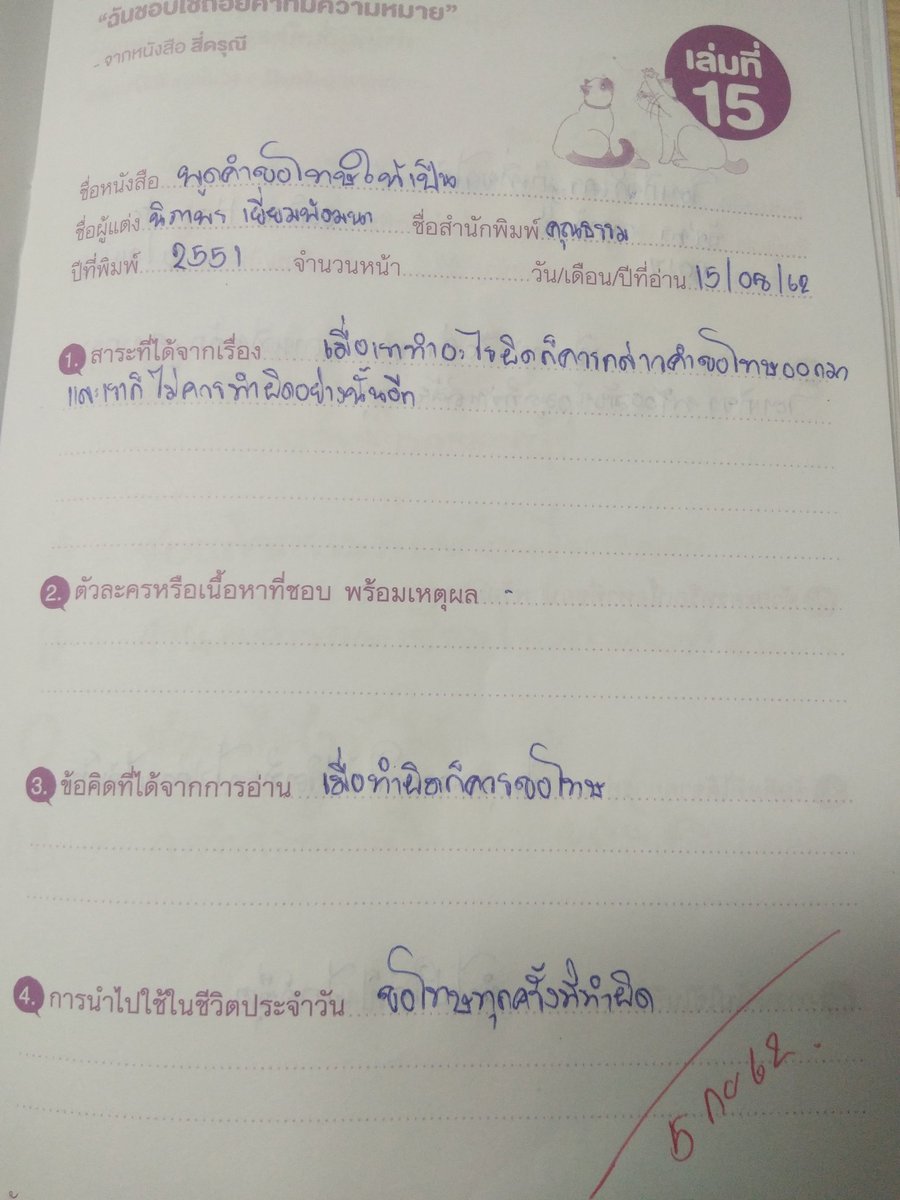 “ฉันชอบใช้ถ้อยคำที่มีความหมาย”
- จากหนังสือ สี่ดรุณี
เล่มที่
15
ชื่อหนังสือ พูดคำขอโทษให้เป็น
ชื่อผู้แต่ง นิภาพร เยี่ยมพ้อมนา ชื่อสำนักพิมพ์ คุณธรรม
ปีที่พิมพ์ 2551 จำนวนหน้า วัน/เดือน/ปีที่อ่าน 15/08/62
1. สาระที่ได้จากเรื่อง เมื่อเราทำอะไรผิดก็ควรกล่าวคำขอโทษออกมา
และเราก็ไม่ควรทำผิดอย่างนั้นอีก
2. ตัวละครหรือเนื้อหาที่ชอบ พร้อมเหตุผล -
3. ข้อคิดที่ได้จากการอ่าน เมื่อทำผิดก็ควรขอโทษ
4. การนำไปใช้ในชีวิตประจำวัน ขอโทษทุกครั้งที่ทำผิด
5 กย 62.